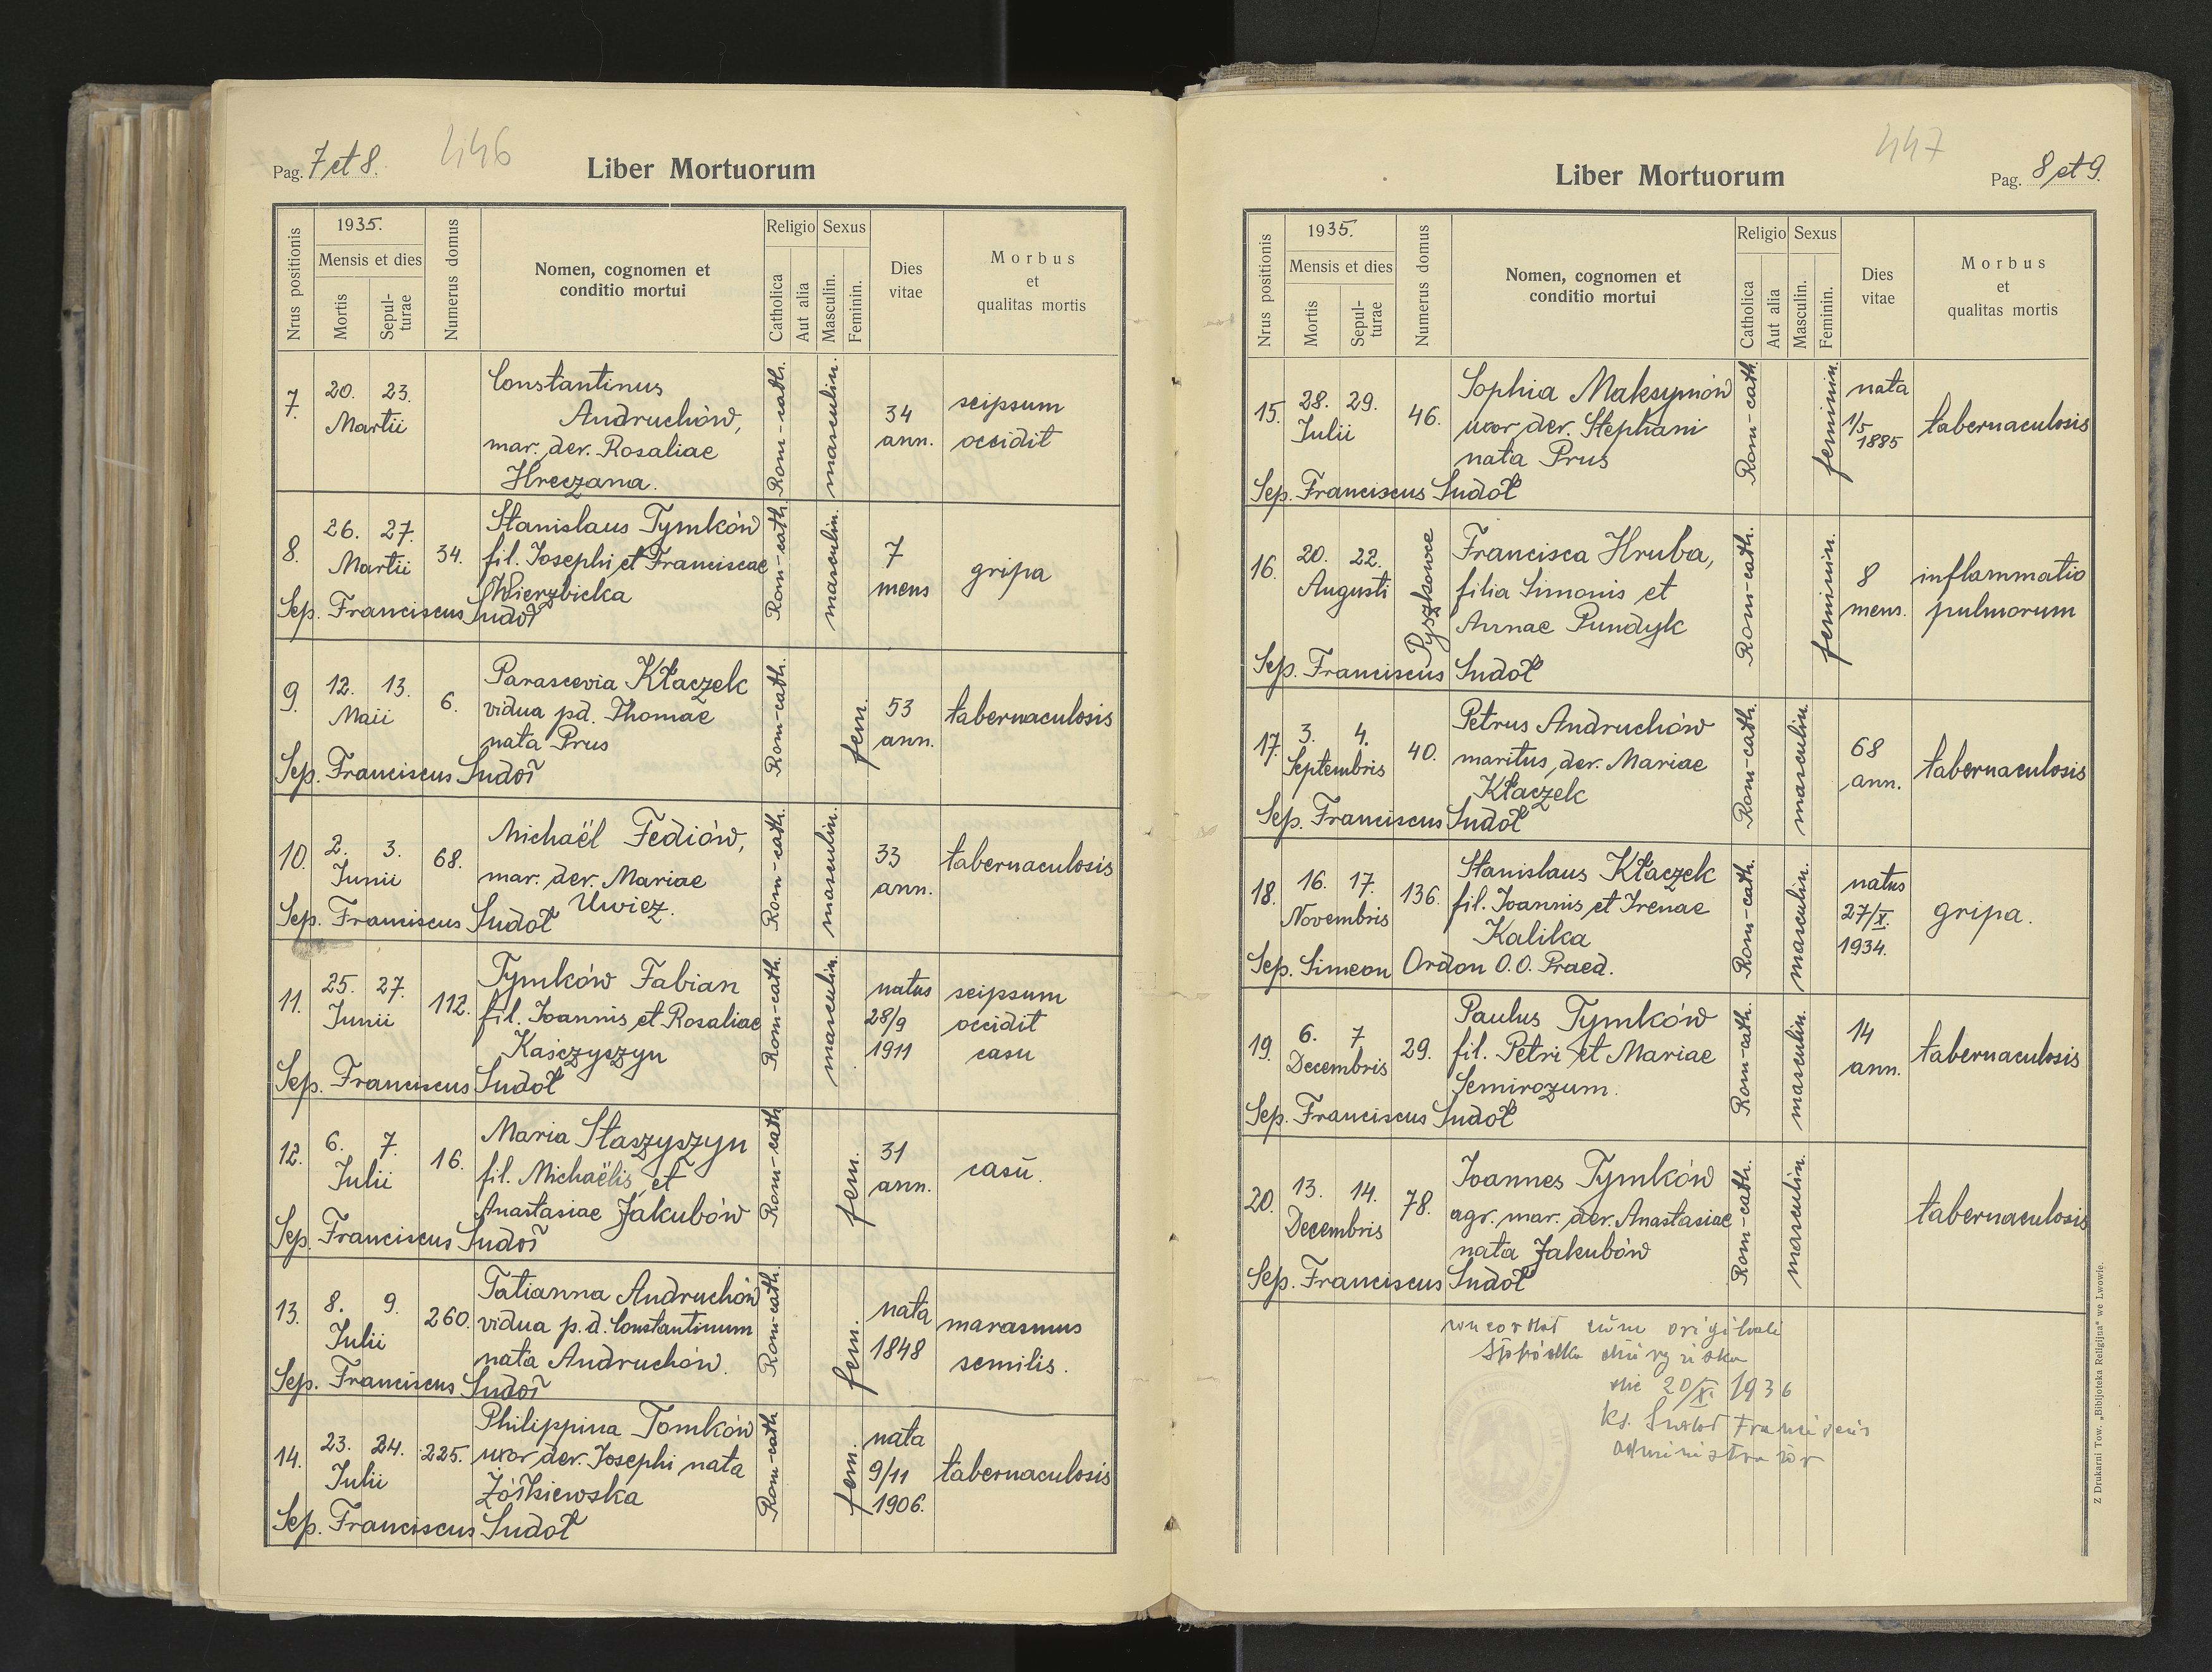 Pag. 7 et 8.
446
Liber Mortuorum
Nrus positionis
1935.
Mensis et dies
Mortis
Sepul-
turae
Numerus domus
Nomen, cognomen et
conditio mortui
Religio
Catholica
Aut alia
Sexus
Masculin.
Feminin.
Dies
vitae
Morbus
et
qualitas mortis
7. 20. 23.
Martii
Constantinus
Andruchów,
mar. der. Rosaliae
Hreczana.
Rom-cath.
masculin.
34
ann.
seipsum
occidit
8. 26. 27.
Martii
34.
Stanislaus Tymków
fil. Josephi et Franciscae
Wierzbicka
Sep. Franciscus Sudoł
Rom-cath.
masculin.
7
mens
gripa
9. 12. 13.
Maii
6.
Parascevia Kłaczek
vidua pd. Thomae
nata Prus
Sep. Franciscus Sudoł
Rom-cath.
fem.
53
ann.
tabernaculosis
10. 2. 3.
Junii
68.
Michaël Fediów,
mar. der. Mariae
Uwiez.
Sep. Franciscus Sudoł
Rom-cath.
masculin.
33
ann.
tabernaculosis
11. 25. 27.
Junii
112.
Tymków Fabian
fil. Joannis et Rosaliae
Kaśczyszyn
Sep. Franciscus Sudoł
Rom-cath.
masculin.
natus
28/9
1911
seipsum
occidit
casu
12. 6. 7.
Julii
16.
Maria Staszyszyn
fil. Michaëlis et
Anastasiae Jakubów
Sep. Franciscus Sudoł
Rom-cath.
fem.
31
ann.
casu.
13. 8. 9.
Julii
260.
Tatianna Andruchów
vidua p.d. Constantinum
nata Andruchów.
Sep. Franciscus Sudoł
Rom-cath.
fem.
nata
1848
marasmus
semilis.
14. 23. 24.
Julii
225.
Philippina Tomków
uxor der. Josephi nata
Żółkiewska
Sep. Franciscus Sudoł
Rom-cath
fem.
nata
9/11
1906.
tabernaculosis
447
Liber Mortuorum
Pag. 8 et 9.
Nrus positionis
1935.
Mensis et dies
Mortis
Sepul-
turae
Numerus domus
Nomen, cognomen et
conditio mortui
Religio
Catholica
Aut alia
Sexus
Masculin.
Feminin.
Dies
vitae
Morbus
et
qualitas mortis
15. 28. 29.
Julii
46.
Sophia Maksymów
uxor der. Stephani
nata Prus
Sep. Franciscus Sudoł
Rom-cath.
feminin.
nata
1/5
1885
tabernaculosis
16. 20. 22.
Augusti
Pyszkowce
Francisca Hruba,
filia Simonis et
Annae Pundyk
Sep. Franciscus Sudoł
Rom-cath.
feminin.
8
mens.
inflammatio
pulmorum
17. 3. 4.
Septembris
40.
Petrus Andruchów
maritus der. Mariae
Kłaczek
Sep. Franciscus Sudoł
Rom-cath.
masculin.
68
ann.
tabernaculosis
18. 16. 17.
Novembris
136.
Stanislaus Kłaczek
fil. Joannis et Irenae
Kalika
Sep. Simeon Ordon O.O. Praed.
Rom-cath.
masculin.
natus
27/X.
1934.
gripa.
19. 6. 7
Decembris
29.
Paulus Tymków
fil. Petri et Mariae
Semirozum.
Sep. Franciscus Sudoł
Rom-cath.
masculin.
14
ann.
tabernaculosis
20. 13. 14.
Decembris
78.
Joannes Tymków
agr. mar. der. Anastasiae
nata Jakubów
Sep. Franciscus Sudoł
Rom-cath.
masculin.
tabernaculosis
concordat cum originali
die 20/X. 1936
Ks. Sudoł Franciscus
administrator
Z Drukarni Tow. „Bibljoteka Religijna" we Lwowie.